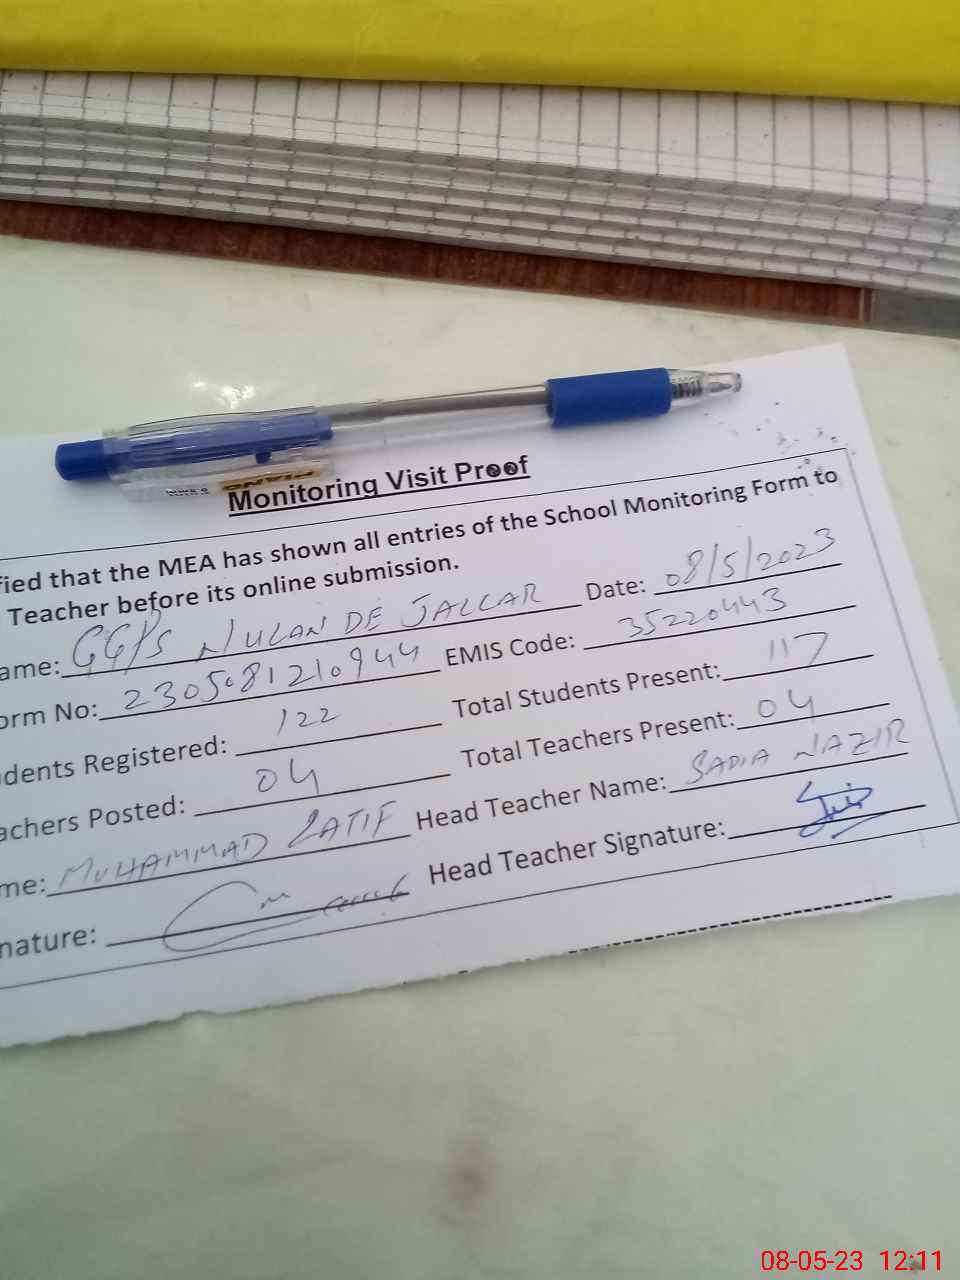 PIANO
Monitoring Visit Proof
fied that the MEA has shown all entries of the School Monitoring Form to
Teacher before its online submission.
ame: GGPS NULAN DE JALLAR Date: 08/5/2023
orm No: 2305081210944 EMIS Code: 35220443
dents Registered: 122 Total Students Present: 117
achers Posted: 04 Total Teachers Present: 04
me: MUHAMMAD LATIF Head Teacher Name: SADIA NAZIR
nature: Head Teacher Signature:
08-05-23 12:11